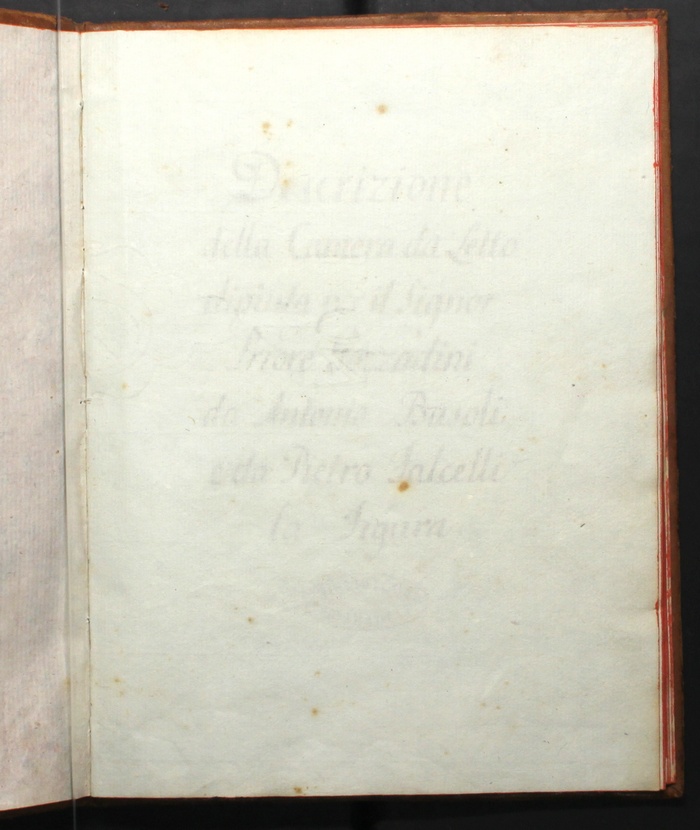 Discrizione
della Camera da Letto
dipinta per il Signor
Priore Gozzadini
da Antonio Basoli
e da Pietro Falcelli
la Figura